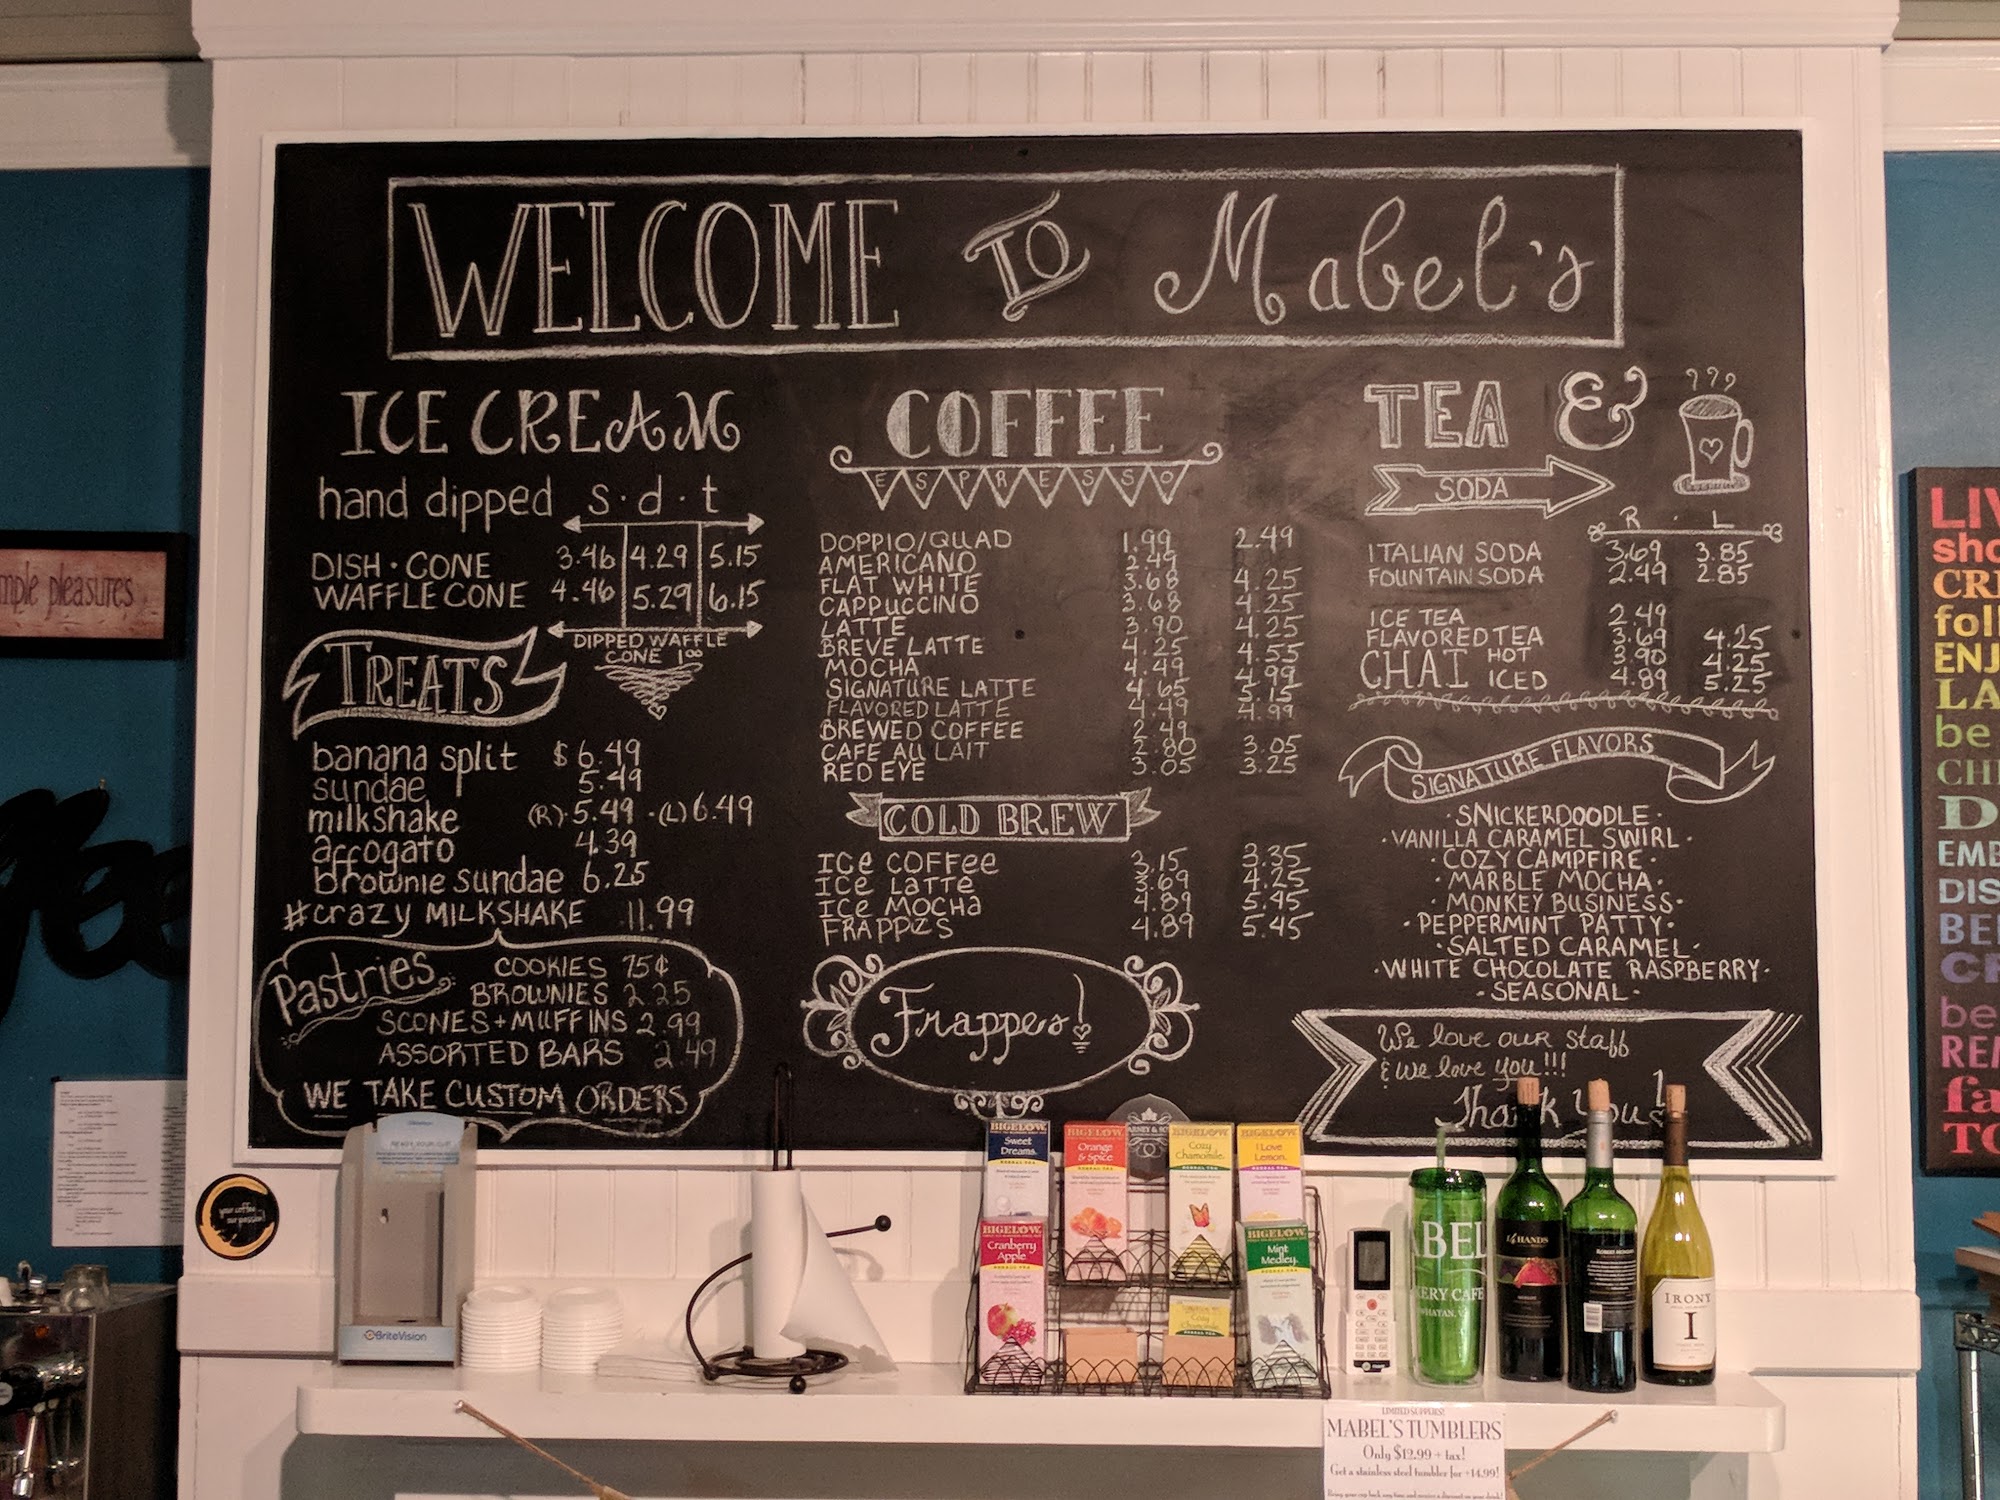 WELCOME TO Mabel's
ICE CREAM
hand dipped s · d · t
DISH · CONE 3.46 4.29 5.15
WAFFLE CONE 4.46 5.29 6.15
DIPPED WAFFLE
CONE 1.00
TREATS
banana split $ 6.49
sundae 5.49
milkshake (R)·5.49 ·(L)6.49
affogato 4.39
brownie sundae 6.25
#crazy MILKSHAKE 11.99
Pastries
COOKIES 75¢
BROWNIES 2.25
SCONES + MUFFINS 2.99
ASSORTED BARS 2.49
WE TAKE CUSTOM ORDERS
COFFEE
ESPRESSO
DOPPIO/QUAD 1.99 2.49
AMERICANO 2.49
FLAT WHITE 3.68 4.25
CAPPUCCINO 3.68 4.25
LATTE 3.90 4.25
BREVE LATTE 4.25 4.55
MOCHA 4.49 4.99
SIGNATURE LATTE 4.65 5.15
FLAVORED LATTE 4.49 4.99
BREWED COFFEE 2.49
CAFE AU LAIT 2.80 3.05
RED EYE 3.05 3.25
COLD BREW
ICE COFFEE 3.15 3.35
ICE LATTE 3.69 4.25
ICE MOCHA 4.89 5.45
FRAPPES 4.89 5.45
Frappes!
TEA &
SODA
R · L
ITALIAN SODA 3.69 3.85
FOUNTAIN SODA 2.49 2.85
ICE TEA 2.49
FLAVORED TEA 3.69 4.25
CHAI HOT 3.90 4.25
ICED 4.89 5.25
SIGNATURE FLAVORS
· SNICKERDOODLE ·
· VANILLA CARAMEL SWIRL ·
· COZY CAMPFIRE ·
· MARBLE MOCHA ·
· MONKEY BUSINESS ·
· PEPPERMINT PATTY ·
· SALTED CARAMEL ·
· WHITE CHOCOLATE RASPBERRY ·
· SEASONAL ·
We love our staff
& we love you!!!
Thank you!
mple pleasures
ffee
LIV
sho
CRE
foll
ENJ
LA
be
CH
D
EMB
DIS
BE
CR
be
REM
fa
TO
your coffee
our passion
BriteVision
BIGELOW
Sweet
Dreams
HERBAL TEA
BIGELOW
Orange
& Spice
HERBAL TEA
BIGELOW
Cozy
Chamomile
HERBAL TEA
BIGELOW
I Love
Lemon
HERBAL TEA
BIGELOW
Cranberry
Apple
HERBAL TEA
Cozy
Chamomile
BIGELOW
Mint
Medley
HERBAL TEA
ABEL
KERY CAFE
WHATAN, V
14 HANDS
IRONY
I
LIMITED SUPPLIES!
MABEL'S TUMBLERS
Only $12.99 + tax!
Get a stainless steel tumbler for +14.99!
Bring your cup back any time and receive a discount on your drink!